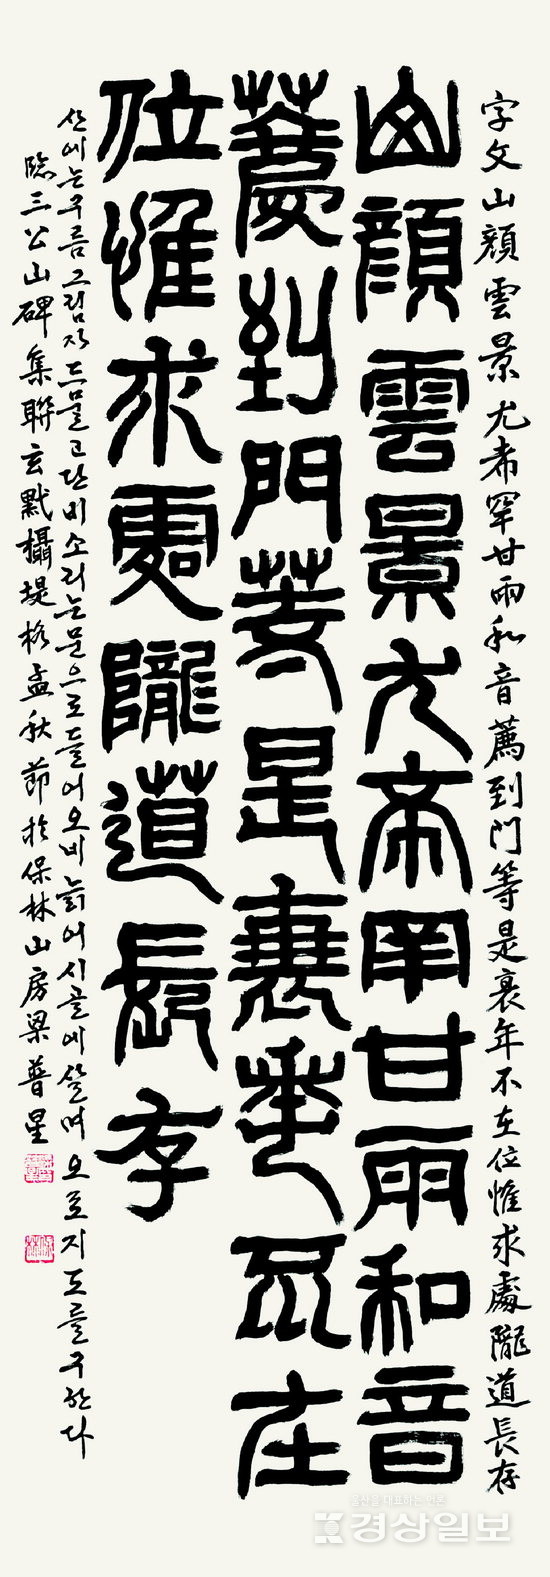 字文山顔雲景尤希罕甘雨和音薦到門等是衰年不在位惟求處隴道長存
山顔雲景尤希罕甘雨和音
薦到門等是衰年不在
位惟求處隴道長存
산에는구름그림자드물고단비소리는문으로들어오네늙어시골에살며오로지도를구한다
臨三公山碑集聯玄黓攝提格孟秋節於保林山房梁普星
울산을 대표하는 신문
경상일보